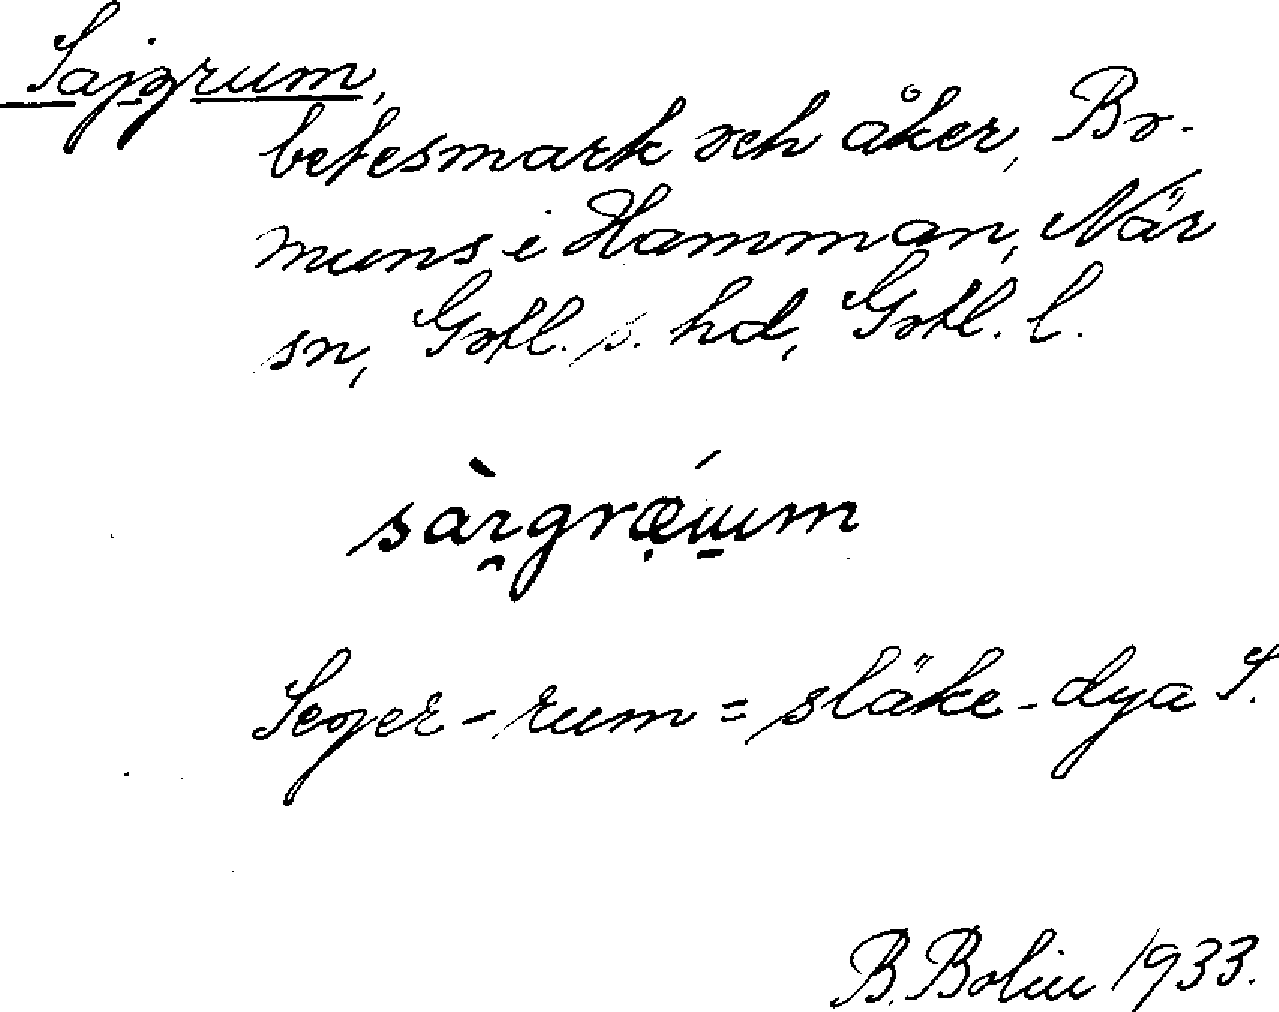 Sajgrum,
betesmark och åker, Bo-
muns i Hamman, När
sn, Gotl. s. hd, Gotl. l.
sàɪ̯grǽu̠m
Seger-rum = släke-dya S.
B. Bolin 1933.